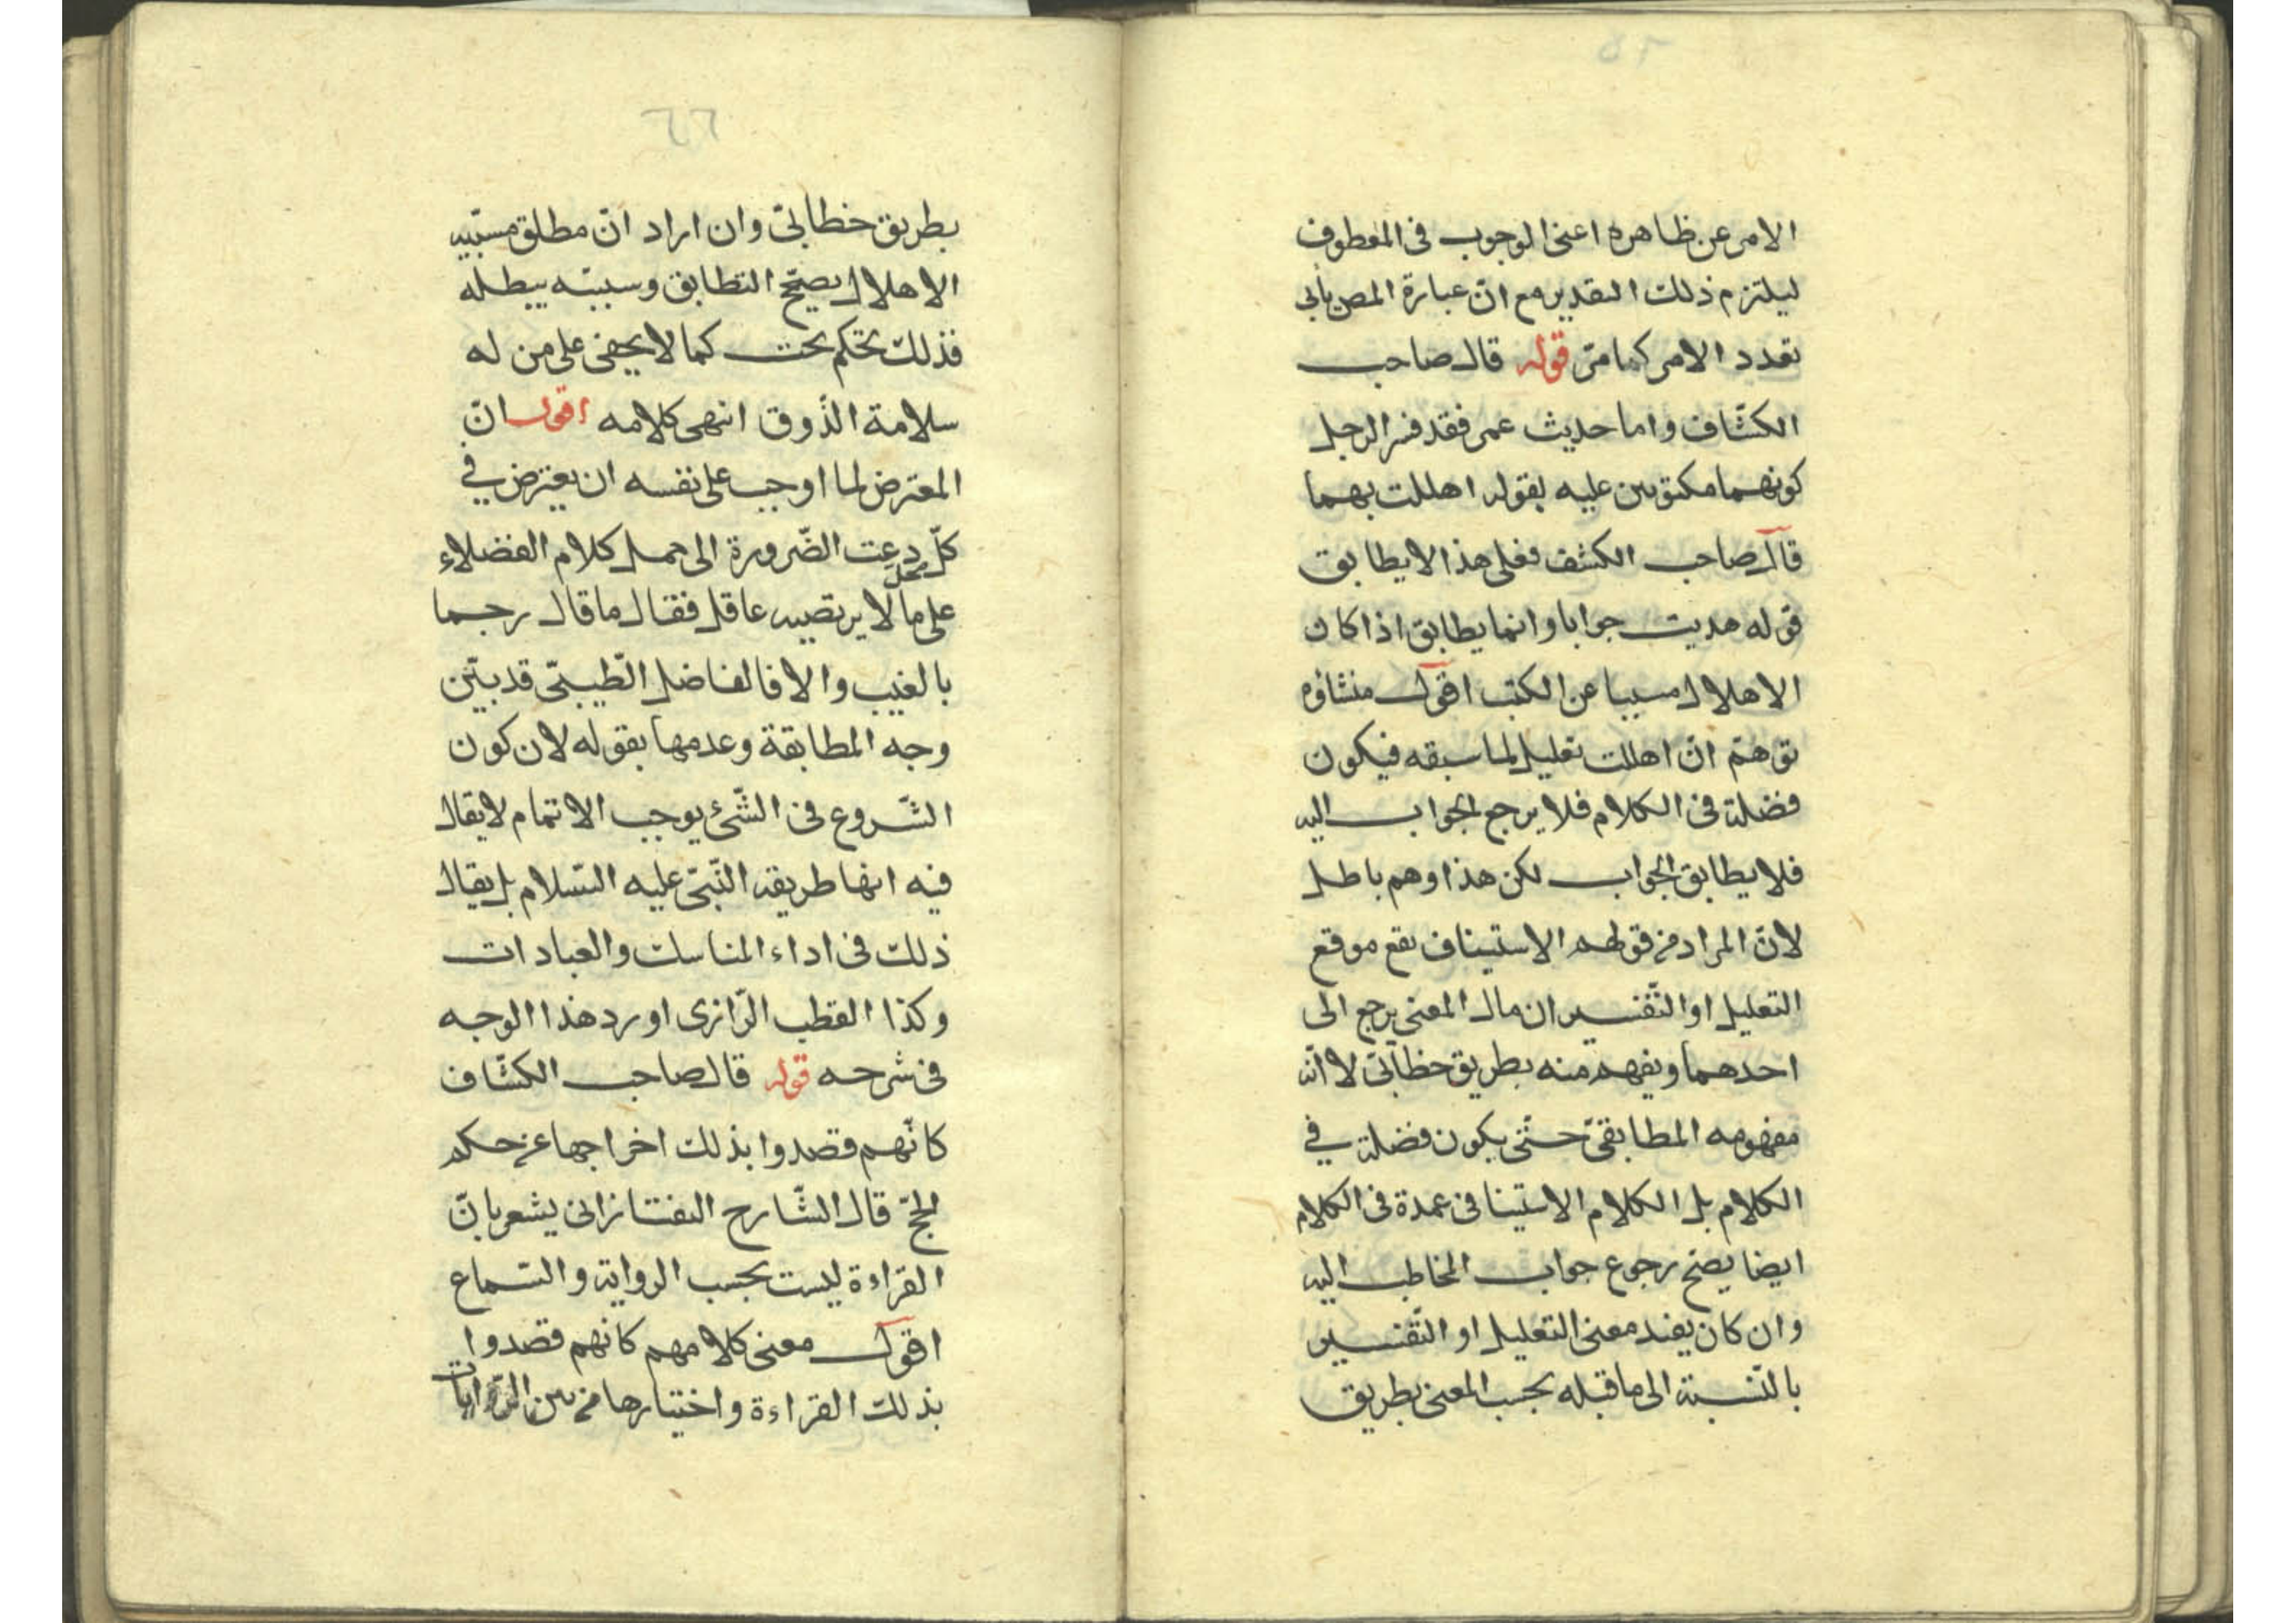 الامر عن ظاهره اعنى الوجوب فى المعطوف
ليلتزم ذلك التقدير مع انّ عبارة المص يأبى
تعدد الامر كما مرّ قوله قال صاحب
الكشّاف واما حديث عمر فقد فسر الرجل
كونهما مكتوبين عليه بقوله اهللت بهما
قال صاحب الكشف فعلى هذا لا يطابق
قوله هديت جوابا وانما يطابق اذا كان
الاهلال مسببا عن الكتب اقول منشاؤه
توهّم انّ اهللت تعليل لما سبقه فيكون
فضلة فى الكلام فلا يرجع الجواب اليه
فلا يطابق الجواب لكن هذا وهم باطل
لانّ المراد من قولهم الاستيناف يقع موقع
التعليل او التّفسير ان مال المعنى يرجع الى
احدهما ويفهم منه بطريق خطابىّ لا انّه
مفهومه المطابقىّ حتّى يكون فضلة في
الكلام بل الكلام الاستينافى عمدة فى الكلام
ايضا يصحّ رجوع جواب المخاطب اليه
وان كان يفيد معنى التعليل او التّفسير
بالنّسبة الى ما قبله بحسب المعنى بطريق
بطريق خطابىّ وان اراد انّ مطلق مسبّبيه
الاهلال يصحّح التطابق وسببيّه يبطله
فذلك تحكم بحت كما لا يخفى على من له
سلامة الذّوق انتهى كلامه اقول انّ
المعترض لما اوجب على نفسه ان يعترض في
كلّ محل دعت الضّرورة الى حمل كلام الفضلاء
على ما لا يرتضيه عاقل فقال ما قال رجما
بالغيب والا فالفاضل الطّيبىّ قد بيّن
وجه المطابقة وعدمها بقوله لان كون
الشّروع فى الشّئ يوجب الاتمام لا يقال
فيه انها طريقة النّبىّ عليه السّلام بل يقال
ذلك فى اداء المناسك والعبادات
وكذا القطب الرّازى اورد هذا الوجه
فى شرحه قوله قال صاحب الكشّاف
كانّهم قصدوا بذلك اخراجها عن حكم
الحجّ قال الشّارح التفتازانى يشعر بانّ
القراءة ليست بحسب الرواية والسّماع
اقول معنى كلامهم كانهم قصدوا
بذلك القراءة واختيارها من بين الرّوايات